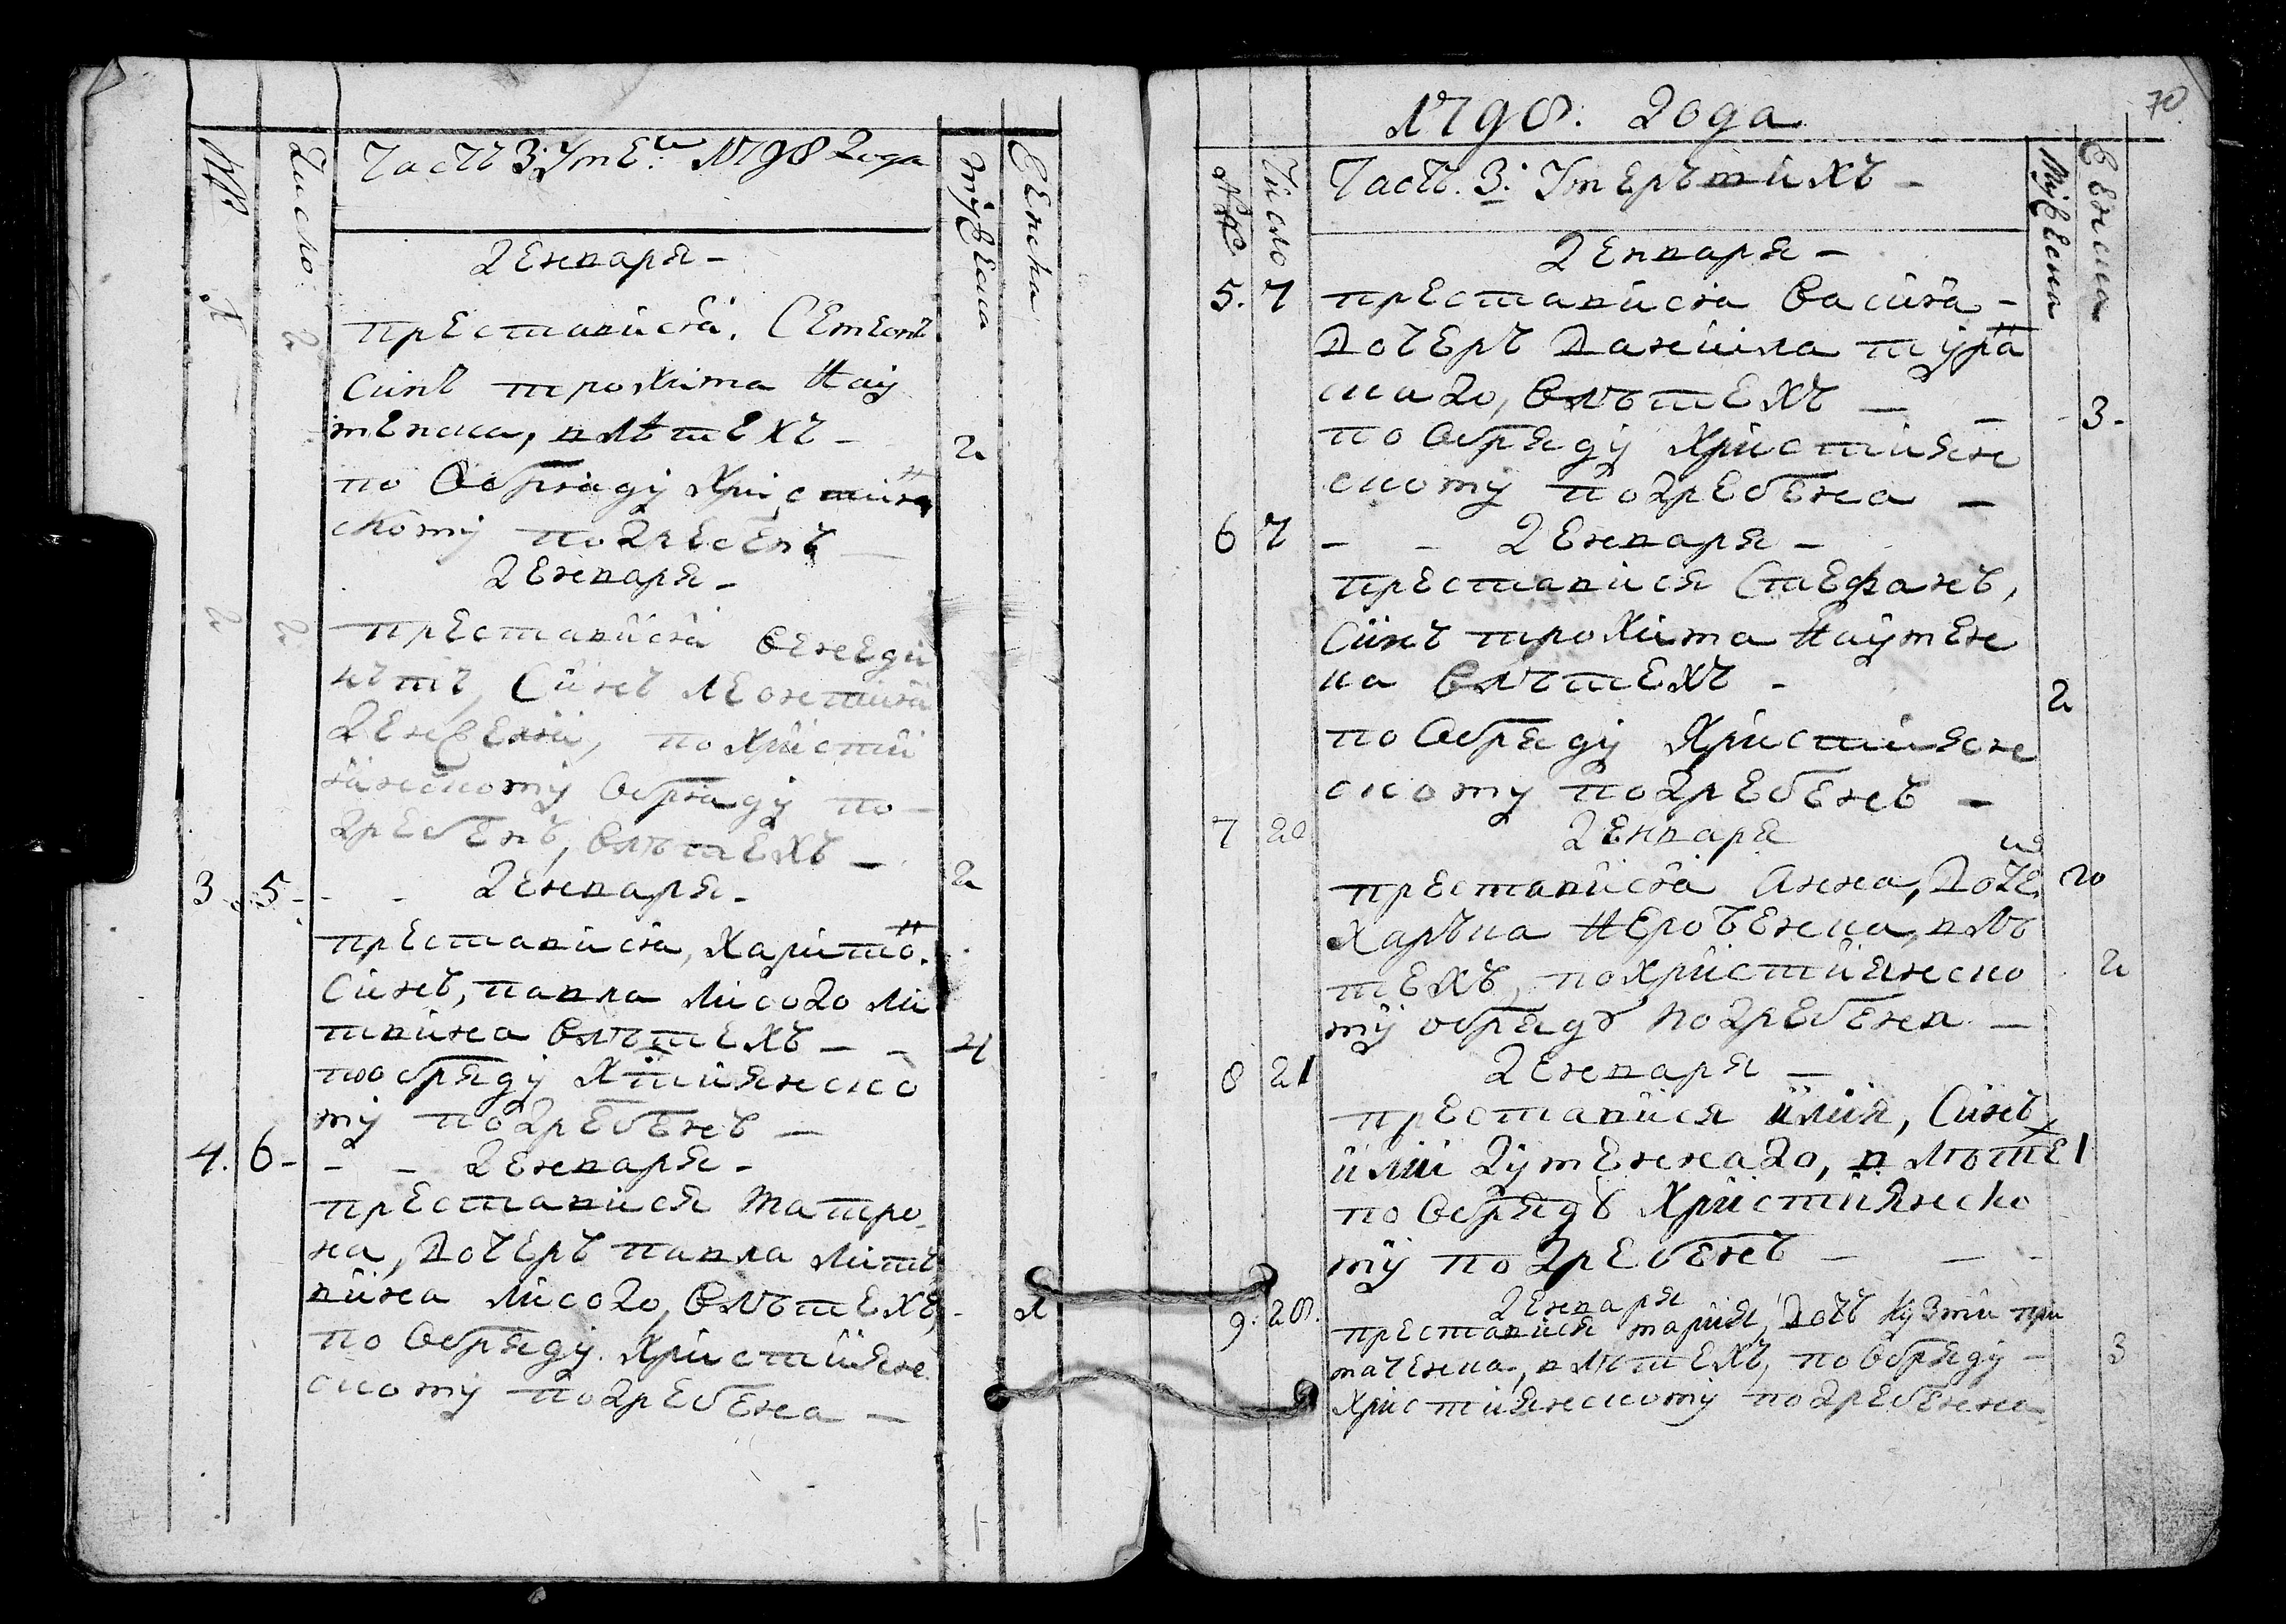 Часть 3: Уме: 1798 года
№
Число
Мужеска
Женска
Генваря -
1
2
преставися. Семеонъ
Синъ трохима Нау
менка, в лѣтехъ -
2
по Обряду Христия
скому погребенъ
Генваря -
2
2
преставися Венеди
ктъ, Синъ леонтия
по Христи
янскому Обряду по -
гребенъ, влѣтехъ -
2
3 - 5 - - Генваря -
преставися, Харито
Синъ, павла лисого ли
твина влѣтехъ - - 4
по обряду Хтиянско
му погребенъ -
4. 6 - - - Генваря -
преставися Матро
на, Дочеръ павла Лит
вина лисого, влѣтехъ, - 1
по Обряду Християн
скому погребена -
70
1798: года
№
Число
Часть. 3: Умеръшихъ -
Мужеска
Женска
Генваря -
5. 7 преставися Васи
Дочеръ Даниила тура
скаго, влѣтехъ - - - 3 -
по Обряду Християн
скому погребена -
6 7 - - Генваря -
преставися Стефанъ,
Синъ трохима Наумен
ка влѣтехъ - 2
по Обряду Християн
скому погребенъ -
7 20 Генваря
преставися Анна, Доче
Харька Неровенка, в лѣ
техъ, по християнско 2
му обряду погребен -
8 21 Генваря -
преставися илия, Синъ
илии гуменнаго, в лѣтех 1
по Обряду Християнско
му погребенъ - - -
9: 28. Генваря
преставися мария, Дочъ кузми при
маченка, в лѣтехъ, по Обряду - 3
Християнскому погребенна